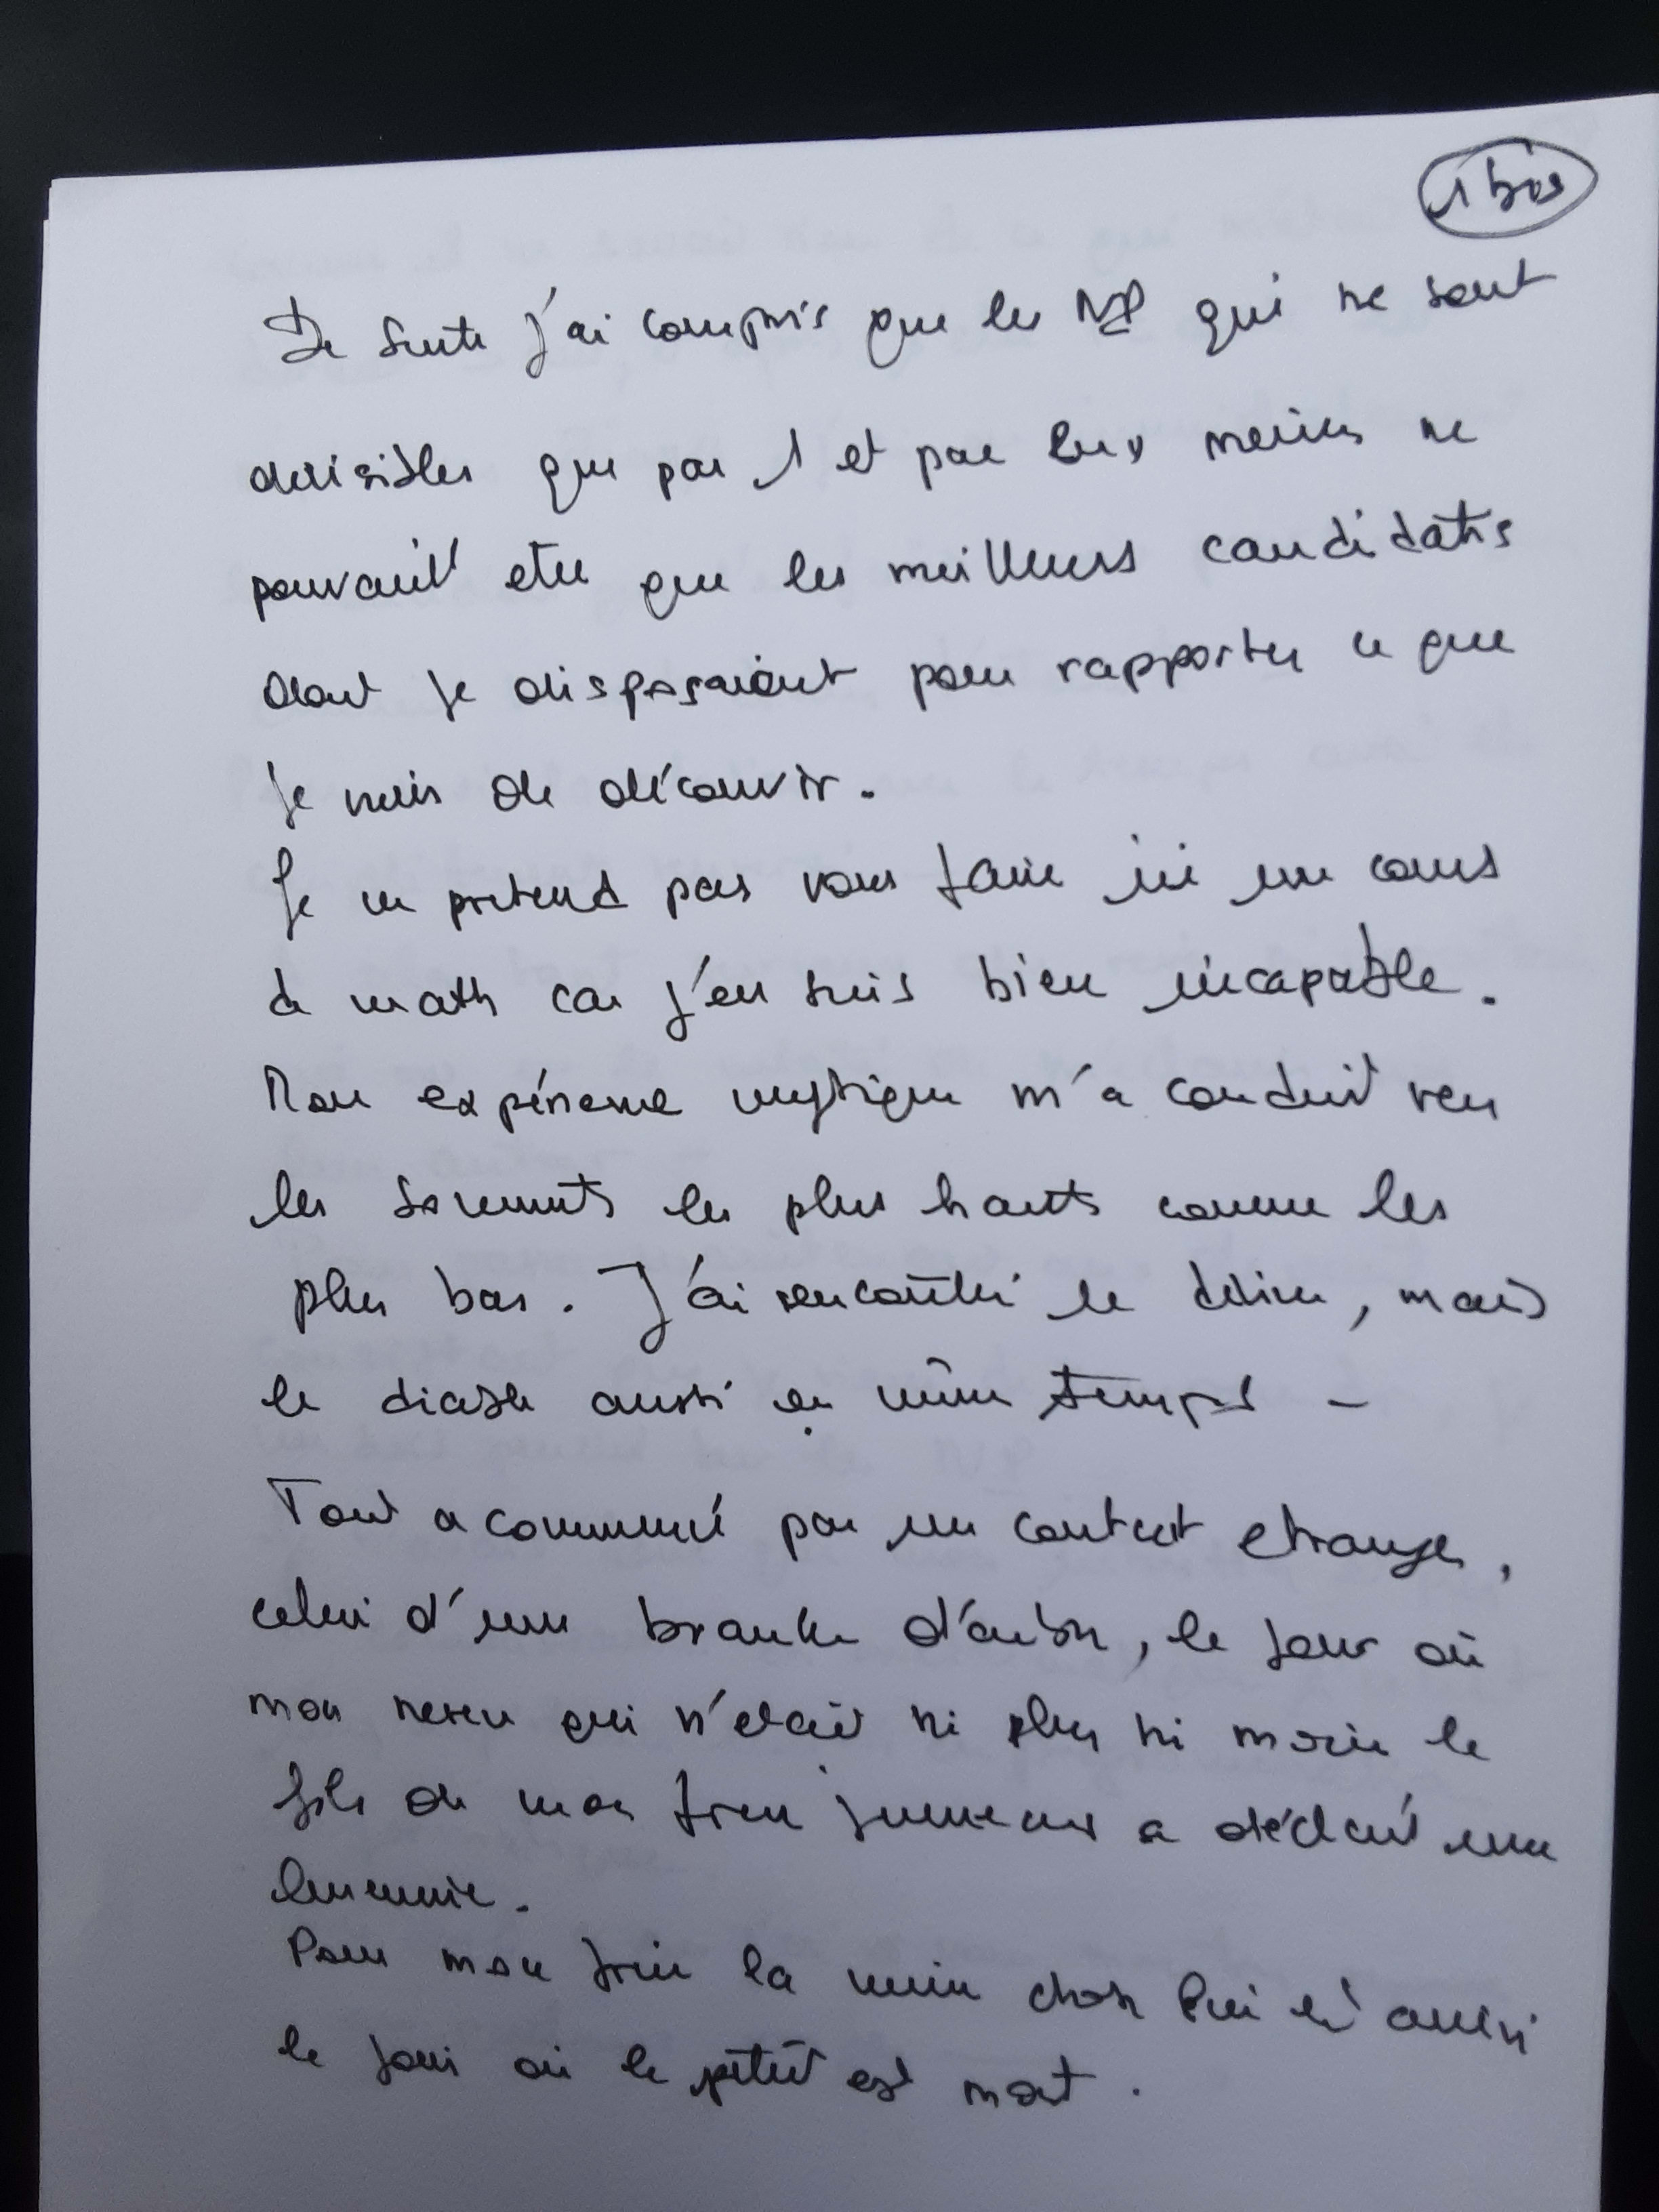 1 bis
De suite j'ai compris que les NP qui ne sont
divisibles que par 1 et par eux mêmes ne
pouvait etre que les meilleurs candidats
dont je disposaient pour rapporter ce que
je vais de découvrir.
Je ne pretend pas vous faire ici un cours
de math car j'en suis bien incapable.
Mon expérience mystique m'a conduit vers
les sommets les plus hauts comme les
plus bas. J'ai rencontré le délire, mais
le diable aussi en même temps -
Tout a commencé par un contact etrange,
celui d'une branche d'arbre, le jour où
mon neveu qui n'etait ni plus ni moins le
fils de mon frere jumeaux a déclaré une
leucemie.
Pour mon frère la même chose lui est aussi
le jour où le petit est mort.